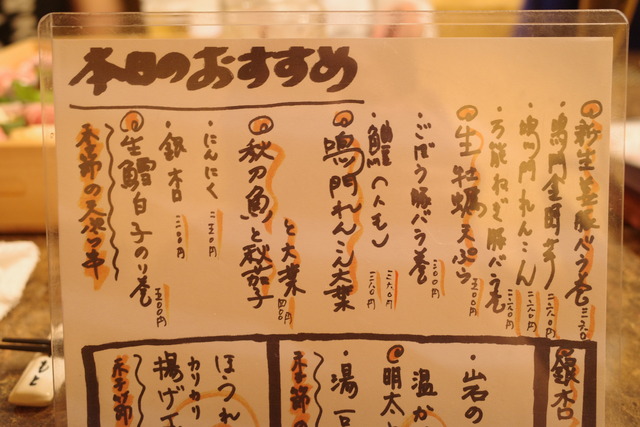 本日のおすすめ
新生姜豚バラ巻 二六〇
・鳴門金時芋 二六〇円
・鳴門れんこん 二六〇円
・万能ねぎ豚バラ巻 二六〇円
生牡蠣天ぷら 五〇〇円
・ごぼう豚バラ巻 二〇〇円
鳴門れんこん大葉
秋刀魚と秋茄子
と大葉 四〇〇円
・にんにく 二五〇円
・銀杏 二〇〇円
生鱈白子のり巻 五〇〇円
季節の天ぷら串
銀杏
・岩の
温か
明太
・湯豆
季節の
ほつれ
カリカリ
揚げ
季節